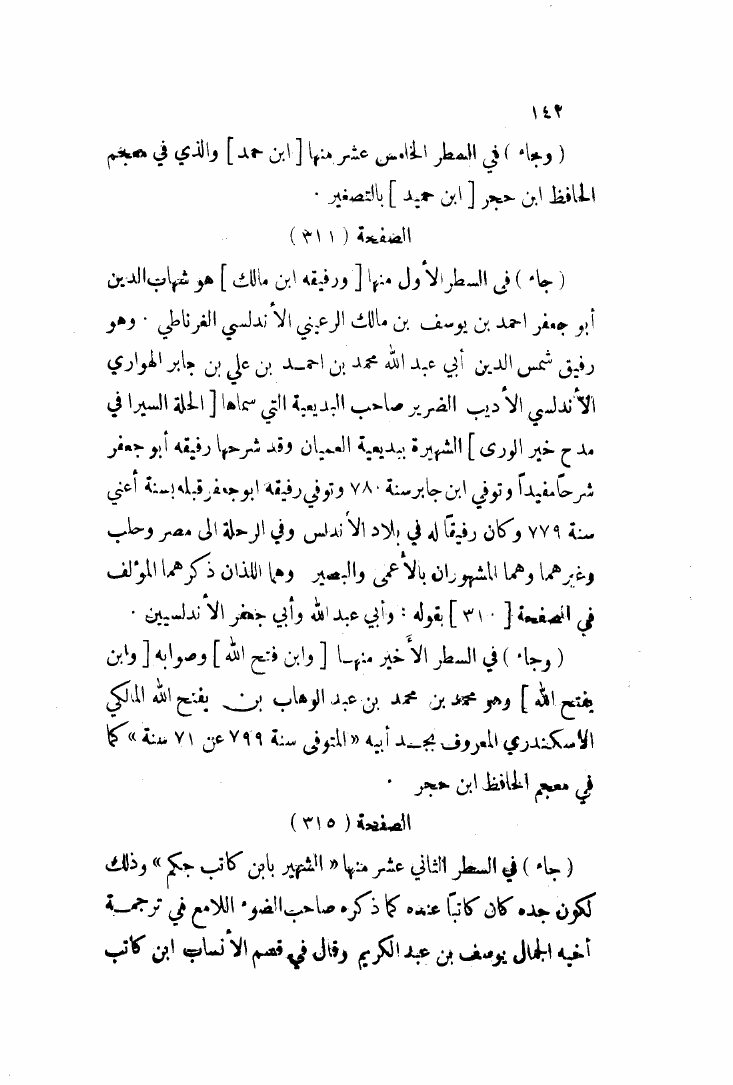 ١٤٢
( وجاء ) في السطر الخامس عشر منها [ ابن حمد ] والذي في معجم
الحافظ ابن حجر [ ابن حميد ] بالتصغير .
الصفحة ( ٣١١ )
( جاء ) في السطر الأول منها [ ورفيقه ابن مالك ] هو شهاب الدين
أبو جعفر احمد بن يوسف بن مالك الرعيني الأندلسي الغرناطي . وهو
رفيق شمس الدين أبي عبد الله محمد بن احمد بن علي بن جابر الهواري
الأندلسي الأديب الضرير صاحب البديعية التي سماها [ الحلة السيرا في
مدح خير الورى ] الشهيرة ببديعية العميان وقد شرحها رفيقه أبو جعفر
شرحاً مفيداً وتوفي ابن جابر سنة ٧٨٠ وتوفي رفيقه ابو جعفر قبله بسنة أعني
سنة ٧٧٩ وكان رفيقاً له في بلاد الأندلس وفي الرحلة الى مصر وحلب
وغيرهما وهما المشهوران بالأعمى والبصير وهما اللذان ذكرهما المؤلف
في الصفحة [ ٣١٠ ] بقوله : وأبي عبد الله وأبي جعفر الأندلسيين .
( وجاء ) في السطر الأخير منها [ وابن فتح الله ] وصوابه [ وابن
يفتح الله ] وهو محمد بن محمد بن عبد الوهاب بن يفتح الله المالكي
الأسكندري المعروف بجد أبيه « المتوفى سنة ٧٩٩ عن ٧١ سنة » كما
في معجم الحافظ ابن حجر .
الصفحة ( ٣١٥ )
( جاء ) في السطر الثاني عشر منها « الشهير بابن كاتب جكم » وذلك
لكون جده كان كاتباً عنده كما ذكره صاحب الضوء اللامع في ترجمة
أخيه الجمال يوسف بن عبد الكريم وقال في قسم الأنساب ابن كاتب